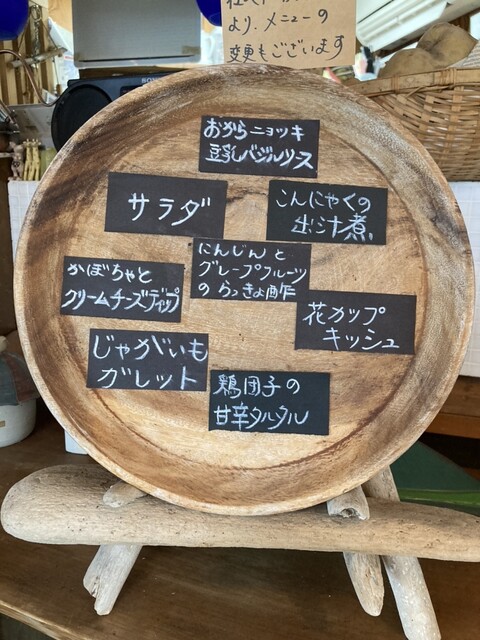 より、メニューの
変更もございます
SONY
おからニョッキ
豆乳バジルソース
サラダ
こんにゃくの
出汁煮
にんじんと
グレープフルーツ
のらっきょ酢
かぼちゃと
クリームチーズディップ
花カップ
キッシュ
じゃがいも
ガレット
鶏団子の
甘辛タルタル